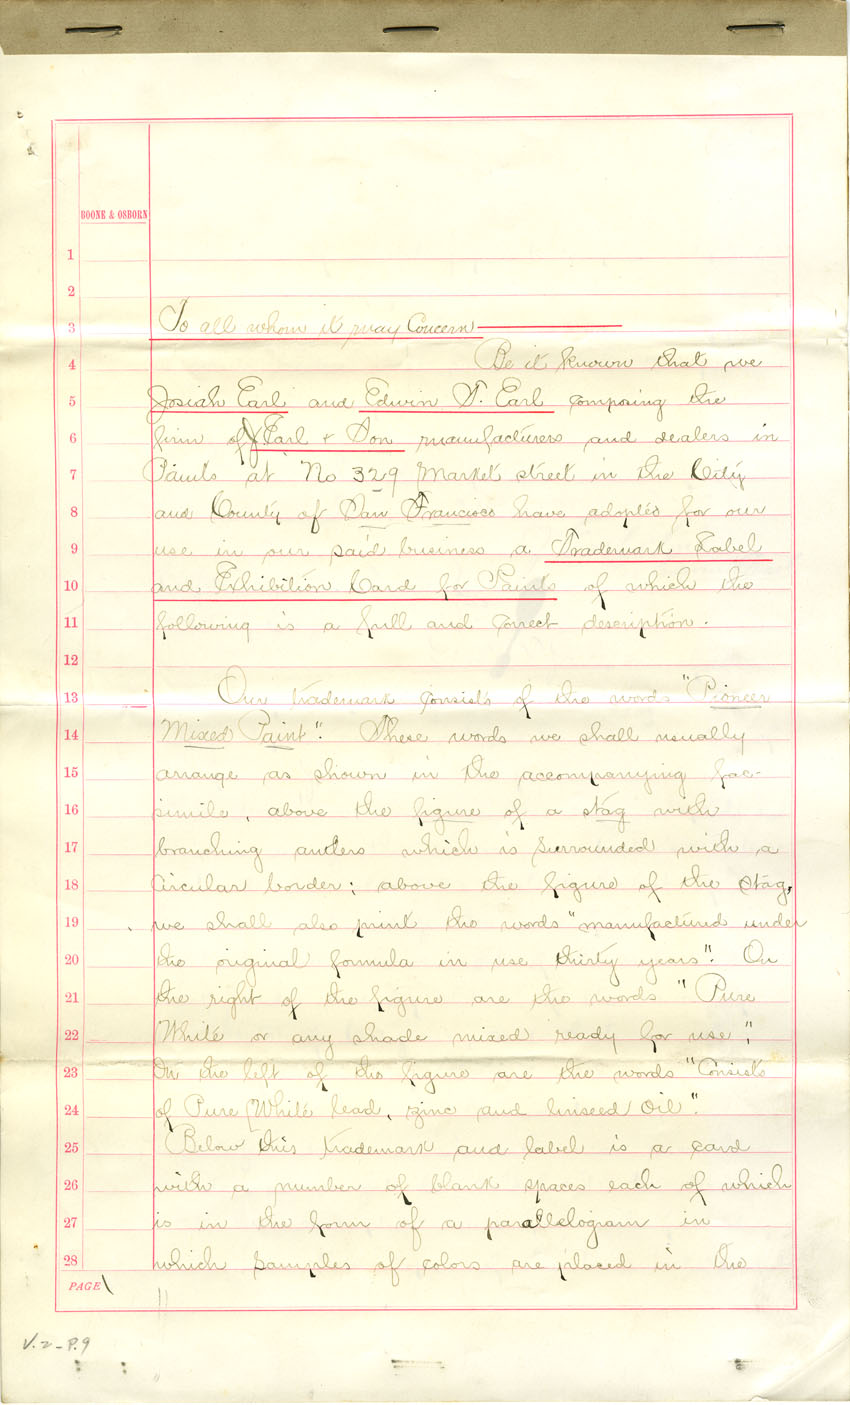 BOONE & OSBORN
1
2
3 To all whom it may Concern
4 Be it known that we
5 Josiah Earl and Edwin T. Earl composing the
6 firm of J Earl & Son manufacturers and dealers in
7 Paints at No 329 Market street in the City
8 and County of San Francisco have adopted for our
9 use in our said business a Trademark Label
10 and Exhibition Card for Paints of which the
11 following is a full and correct description.
12
13 Our trademark consists of the words "Pioneer
14 Mixed Paint". These words we shall usually
15 arrange as shown in the accompanying fac-
16 simile, above the figure of a stag with
17 branching antlers which is surrounded with a
18 Circular border; above the figure of the stag,
19 we shall also print the words "manufactured under
20 the original formula in use thirty years". On
21 the right of the figure are the words "Pure
22 White or any shade mixed ready for use";
23 On the left of the figure are the words "Consists
24 of Pure White lead, zinc and linseed oil".
25 Below this trademark and label is a card
26 with a number of blank spaces each of which
27 is in the form of a parallelogram in
28 which samples of colors are placed in the
PAGE 1
V.2-P.9